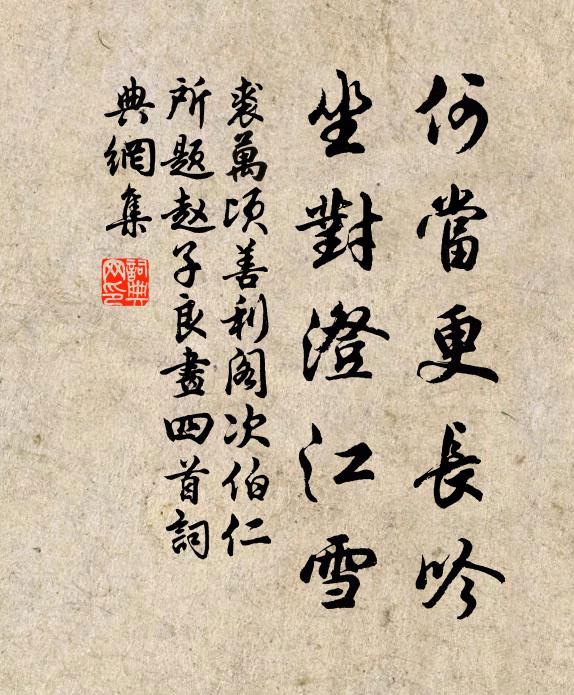 何當更長吟
坐對澄江雪
裘萬頃善利阁次伯仁
所题赵子良畫四首詞
典網集
詞典網印